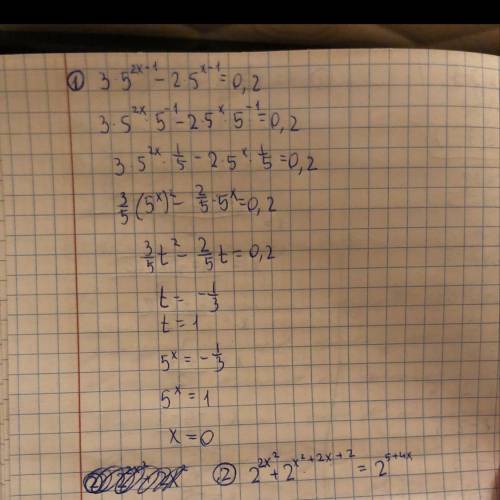 ① 3·5^(2x-1) - 2·5^(x-1) = 0,2
3·5^(2x)·5^(-1) - 2·5^x·5^(-1) = 0,2
3·5^(2x)·1/5 - 2·5^x·1/5 = 0,2
3/5(5^x)² - 2/5·5^x = 0,2
3/5t² - 2/5t = 0,2
t = -1/3
t = 1
5^x = -1/3
5^x = 1
x = 0
② 2^(2x²) + 2^(x²+2x+2) = 2^(5+4x)